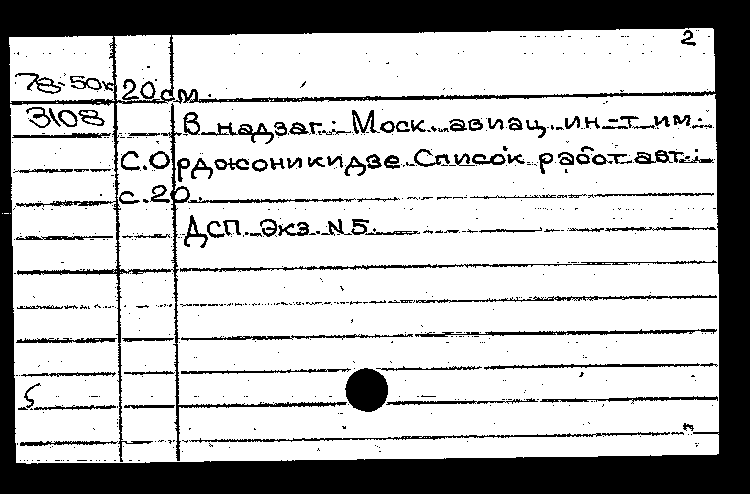 2
78-50к 20 см.
3108 В надзаг.: Моск. авиац. ин-т им.
С. Орджоникидзе. Список работ авт.:
с. 20.
ДСП. Экз. N 5.
5